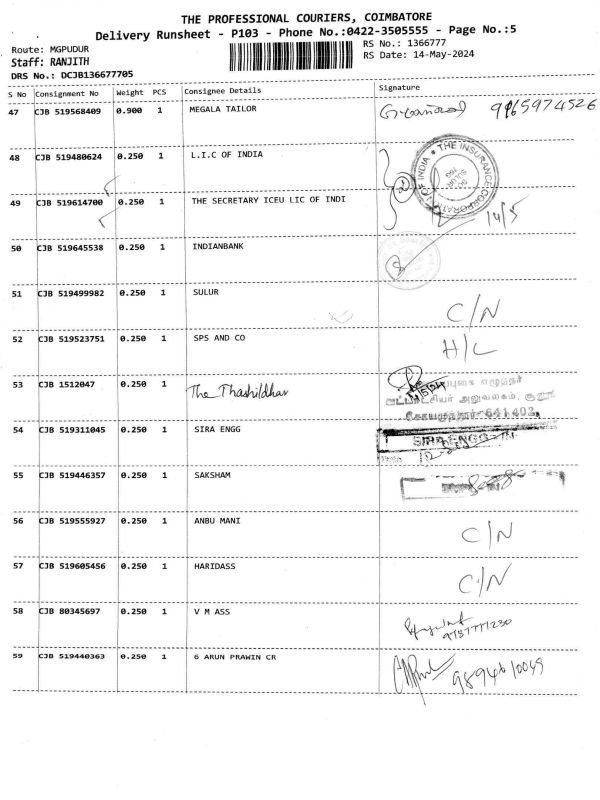 THE PROFESSIONAL COURIERS, COIMBATORE
Delivery Runsheet - P103 - Phone No.:0422-3505555 - Page No.:5
Route: MGPUDUR
Staff: RANJITH
DRS No.: DCJB136677705
RS No.: 1366777
RS Date: 14-May-2024
S No Consignment No Weight PCS Consignee Details Signature
47 CJB 519568409 0.900 1 MEGALA TAILOR 9965974526
48 CJB 519480624 0.250 1 L.I.C OF INDIA
49 CJB 519614700 0.250 1 THE SECRETARY ICEU LIC OF INDI
2
THE INSURANCE CORPORATION OF INDIA
14/5
50 CJB 519645538 0.250 1 INDIANBANK
51 CJB 519499982 0.250 1 SULUR C/N
52 CJB 519523751 0.250 1 SPS AND CO H/L
53 CJB 1512047 0.250 1 The Thashildhar
அலுவலகம்,
641402
54 CJB 519311045 0.250 1 SIRA ENGG
SIRA ENGG
55 CJB 519446357 0.250 1 SAKSHAM
56 CJB 519555927 0.250 1 ANBU MANI C/N
57 CJB 519605456 0.250 1 HARIDASS C/N
58 CJB 80345697 0.250 1 V M ASS
59 CJB 519440363 0.250 1 6 ARUN PRAWIN CR